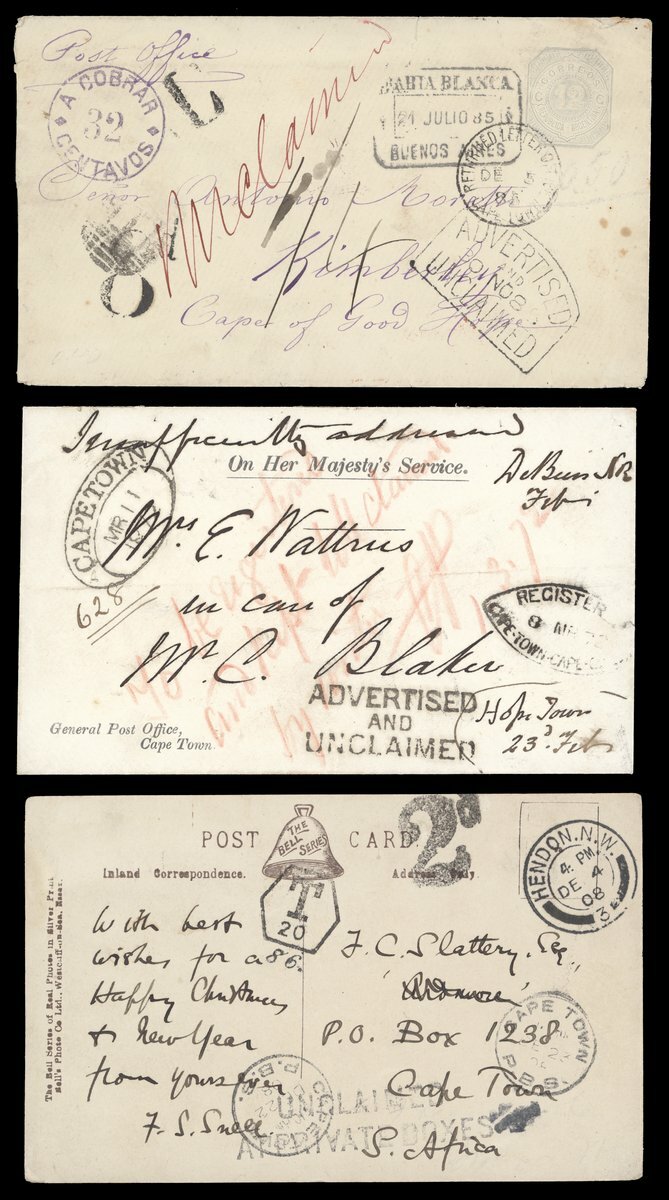 Post Office
A COBRAR
32
CENTAVOS
Unclaimed
BAHIA BLANCA
21 JULIO 85
BUENOS AIRES
RETURNED LETTER
DE
CAPE TOWN
Señor Antonio
Kimberley
Cape of Good Hope
ADVERTISED
AND
UNCLAIMED
Insufficiently addressed
On Her Majesty's Service.
De Beers N.R.
Feb
CAPETOWN
MR 11
628
Mrs E. Wattrus
in care of
Mr. C. Blake
REGISTER
CAPE-TOWN-CAPE
ADVERTISED
AND
UNCLAIMED
General Post Office,
Cape Town
Hope Town
23d Feb
POST CARD.
THE
BELL SERIES
2d
Inland Correspondence.
Address Only.
HENDON.N.W.
4. PM
DE 4
08
T
20
With best
wishes for a
Happy Christmas
& New Year
from yours ever
F. S. Snell.
F. C. Slattery, Esq.,
P.O. Box 1238
Cape Town
S. Africa
CAPE TOWN
P.B.S.
CAPE TOWN
P.B.S.
UNCLAIMED
AT PRIVATE BOXES
The Bell Series of Real Photos in Silver Print
Bell's Photo Co Ltd., Westcliff-on-Sea, Essex.